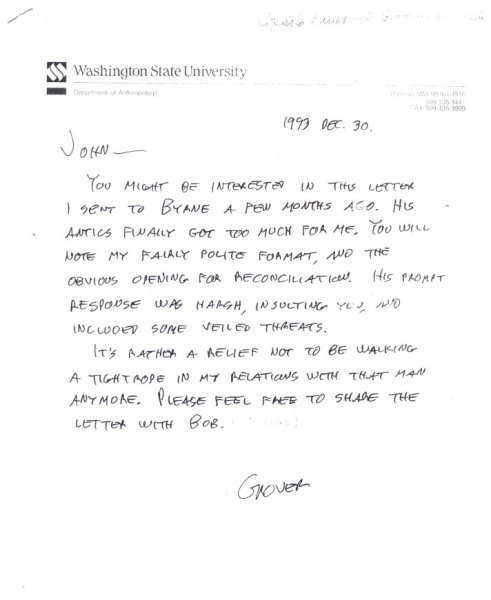 Washington State University
Department of Anthropology
509-335-3441
FAX 509-335-3999
1993 DEC. 30.
JOHN —
YOU MIGHT BE INTERESTED IN THIS LETTER
I SENT TO BYRNE A FEW MONTHS AGO. HIS
ANTICS FINALLY GOT TOO MUCH FOR ME. YOU WILL
NOTE MY FAIRLY POLITE FORMAT, AND THE
OBVIOUS OPENING FOR RECONCILIATION. HIS PROMPT
RESPONSE WAS HARSH, INSULTING YOU, AND
INCLUDED SOME VEILED THREATS.
IT'S RATHER A RELIEF NOT TO BE WALKING
A TIGHTROPE IN MY RELATIONS WITH THAT MAN
ANYMORE. PLEASE FEEL FREE TO SHARE THE
LETTER WITH BOB.
GROVER